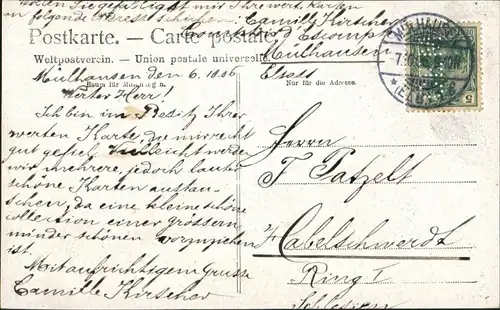 Wollen Sie gefälligst mir Ihre werten Karten
an folgende Adresse schicken: Camille Kirscher
Comptoir d'Escompte
Mülhausen
Elsass
Postkarte. — Carte postale.
Weltpostverein. — Union postale universelle.
Raum für Mitteilungen.
Nur für die Adresse.
Mülhausen den 6. 10. 06
Werter Herr!
Ich bin im Besitz Ihrer
werten Karte, die mir recht
gut gefiel. Vielleicht werden
wir mehrere, jedoch lauter
schöne Karten austau-
schen, da eine kleine schöne
collection einer grössern
minder schönen vorzuziehen
ist.
Mit aufrichtigem Grusse
Camille Kirscher
Herrn
J. Patzelt
Habelschwerdt
Ring 1
Schlesien
MÜLHAUSEN
(ELS.)
5